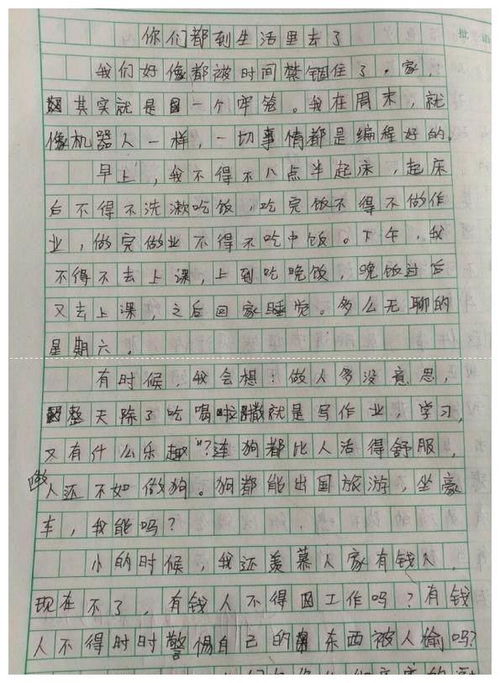 你们都到生活里去了
我们好像都被时间禁锢住了。家,
其实就是一个牢笼。我在周末,就
像机器人一样,一切事情都是编程好的。
早上,我不得不八点半起床,起床
后不得不洗漱吃饭,吃完饭不得不做作
业,做完做业不得不吃中饭。下午,我
不得不去上课,上到吃晚饭,晚饭过后
又去上课,之后回家睡觉。多么无聊的
星期六。
有时候,我会想:做人多没意思,
整天除了吃喝拉撒就是写作业,学习,
又有什么乐趣"?连狗都比人活得舒服,
做人还不如做狗。狗都能出国旅游,坐豪
车,我能吗?
小的时候,我还羡慕人家有钱人,
现在不了,有钱人不得工作吗?有钱
人不得时时警惕自己的东西被人偷吗?